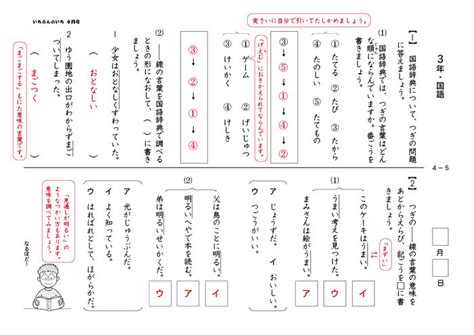 3年・国語
4－5
月
日
【1】 国語辞典について、つぎの問題に答えましょう。
(1) 国語辞典では、つぎの言葉はどんな順にならんでいますか。番ごうを書きましょう。
1 ① たてる ② たび ③ たから
④ たのしい ⑤ たてもの
③→①→⑤→④→②
「げえむ」におきかえられてならんでいます。
2 ① ゲーム ② げいじゅつ
③ けいかく ④ けしき
③→④→②→①
実さいに自分で引いてたしかめましょう。
(2) ――線の言葉を国語辞典で調べるときの形になおして、( )に書きましょう。
1 少女はおとなしくすわっていた。
( おとなしい )
2 ゆう園地の出口がわからずまごついてしまった。
( まごつく )
「まごまごする」もにた意味の言葉です。
いちぶんのいち
【2】 つぎの――線の言葉の意味をあとからえらび、記ごうを□に書きましょう。
(1)
このケーキはうまい。
「まずい」
イ
うまい考えを見つけた。
ウ
まみさんは絵がうまい。
ア
ア じょうずだ。 イ おいしい。
ウ つごうがいい。
(2)
父は鳥のことに明るい。
イ
明るいへやで本を読む。
ア
弟は明るいせいかくだ。
ウ
ア 光がじゅうぶんだ。
イ よく知っている。
ウ はればれとして、ほがらかだ。
「見通しが明るい」のようなつかい方もあります。意味を調べてみましょう。
なるほど!